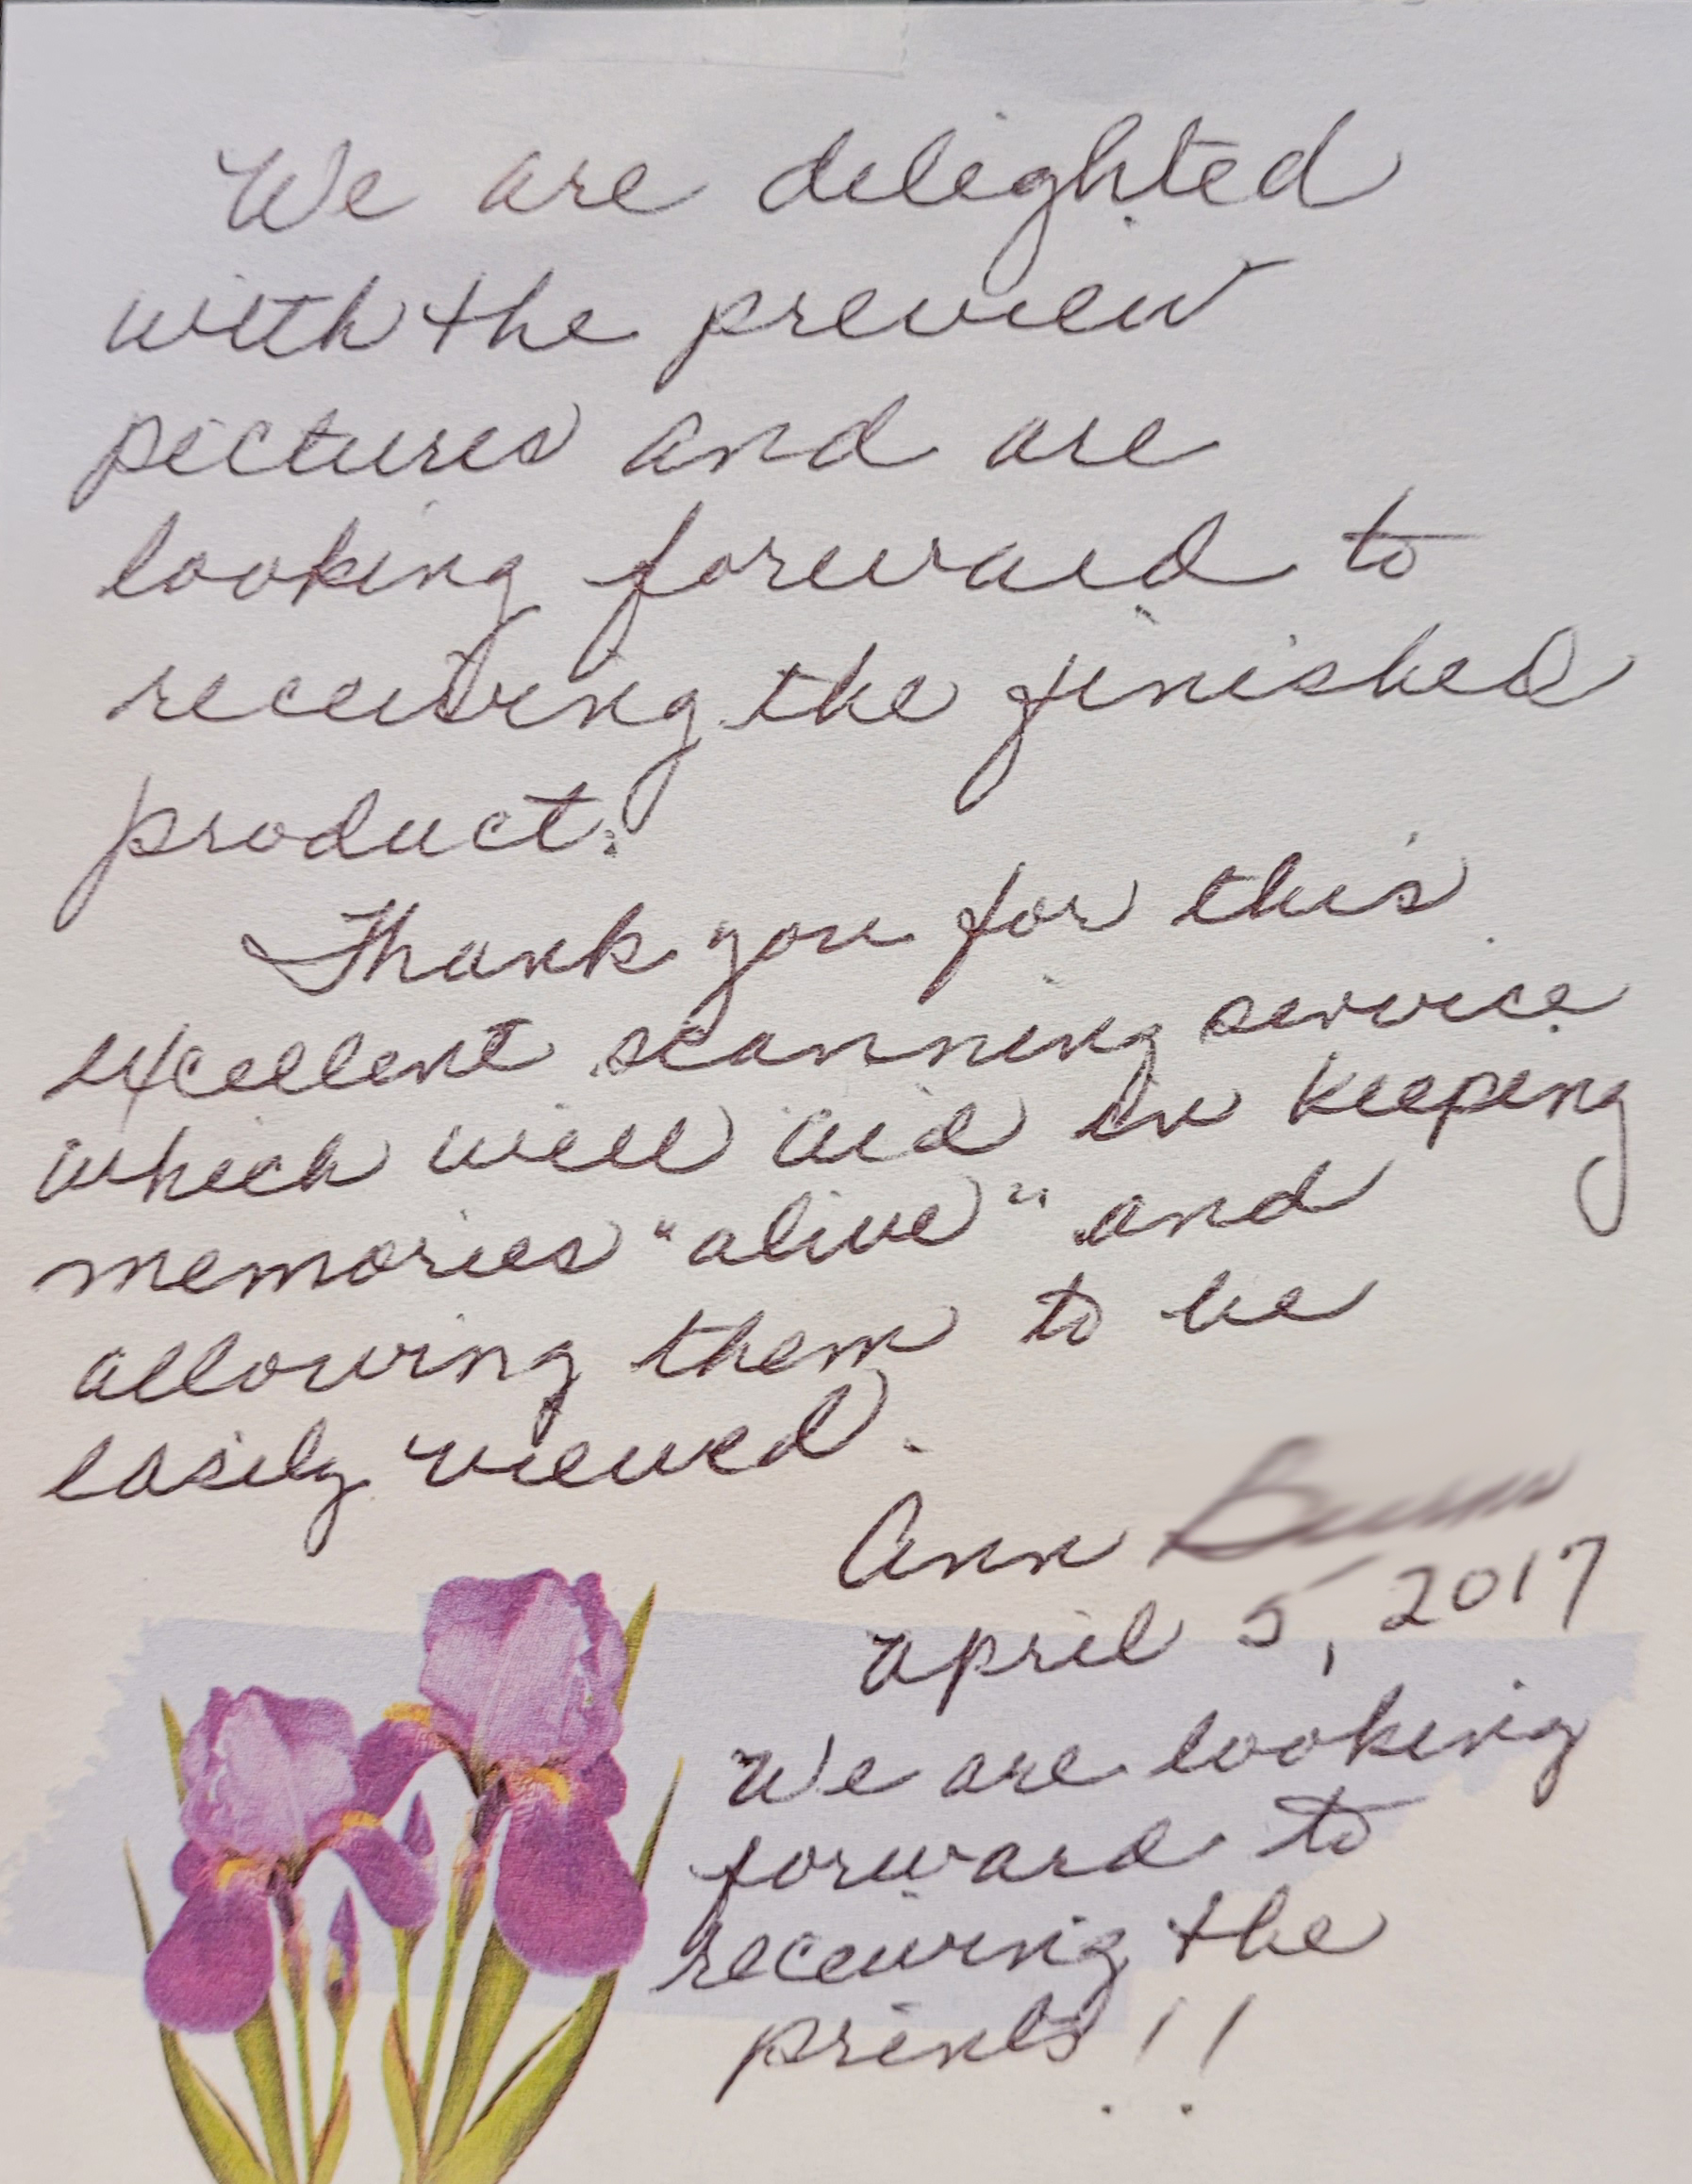 We are delighted
with the preview
pictures and are
looking forward to
receiving the finished
product.
Thank you for this
excellent scanning service
which will aid in keeping
memories "alive" and
allowing them to be
easily viewed.
Ann
April 5, 2017
We are looking
forward to
receiving the
prints!!